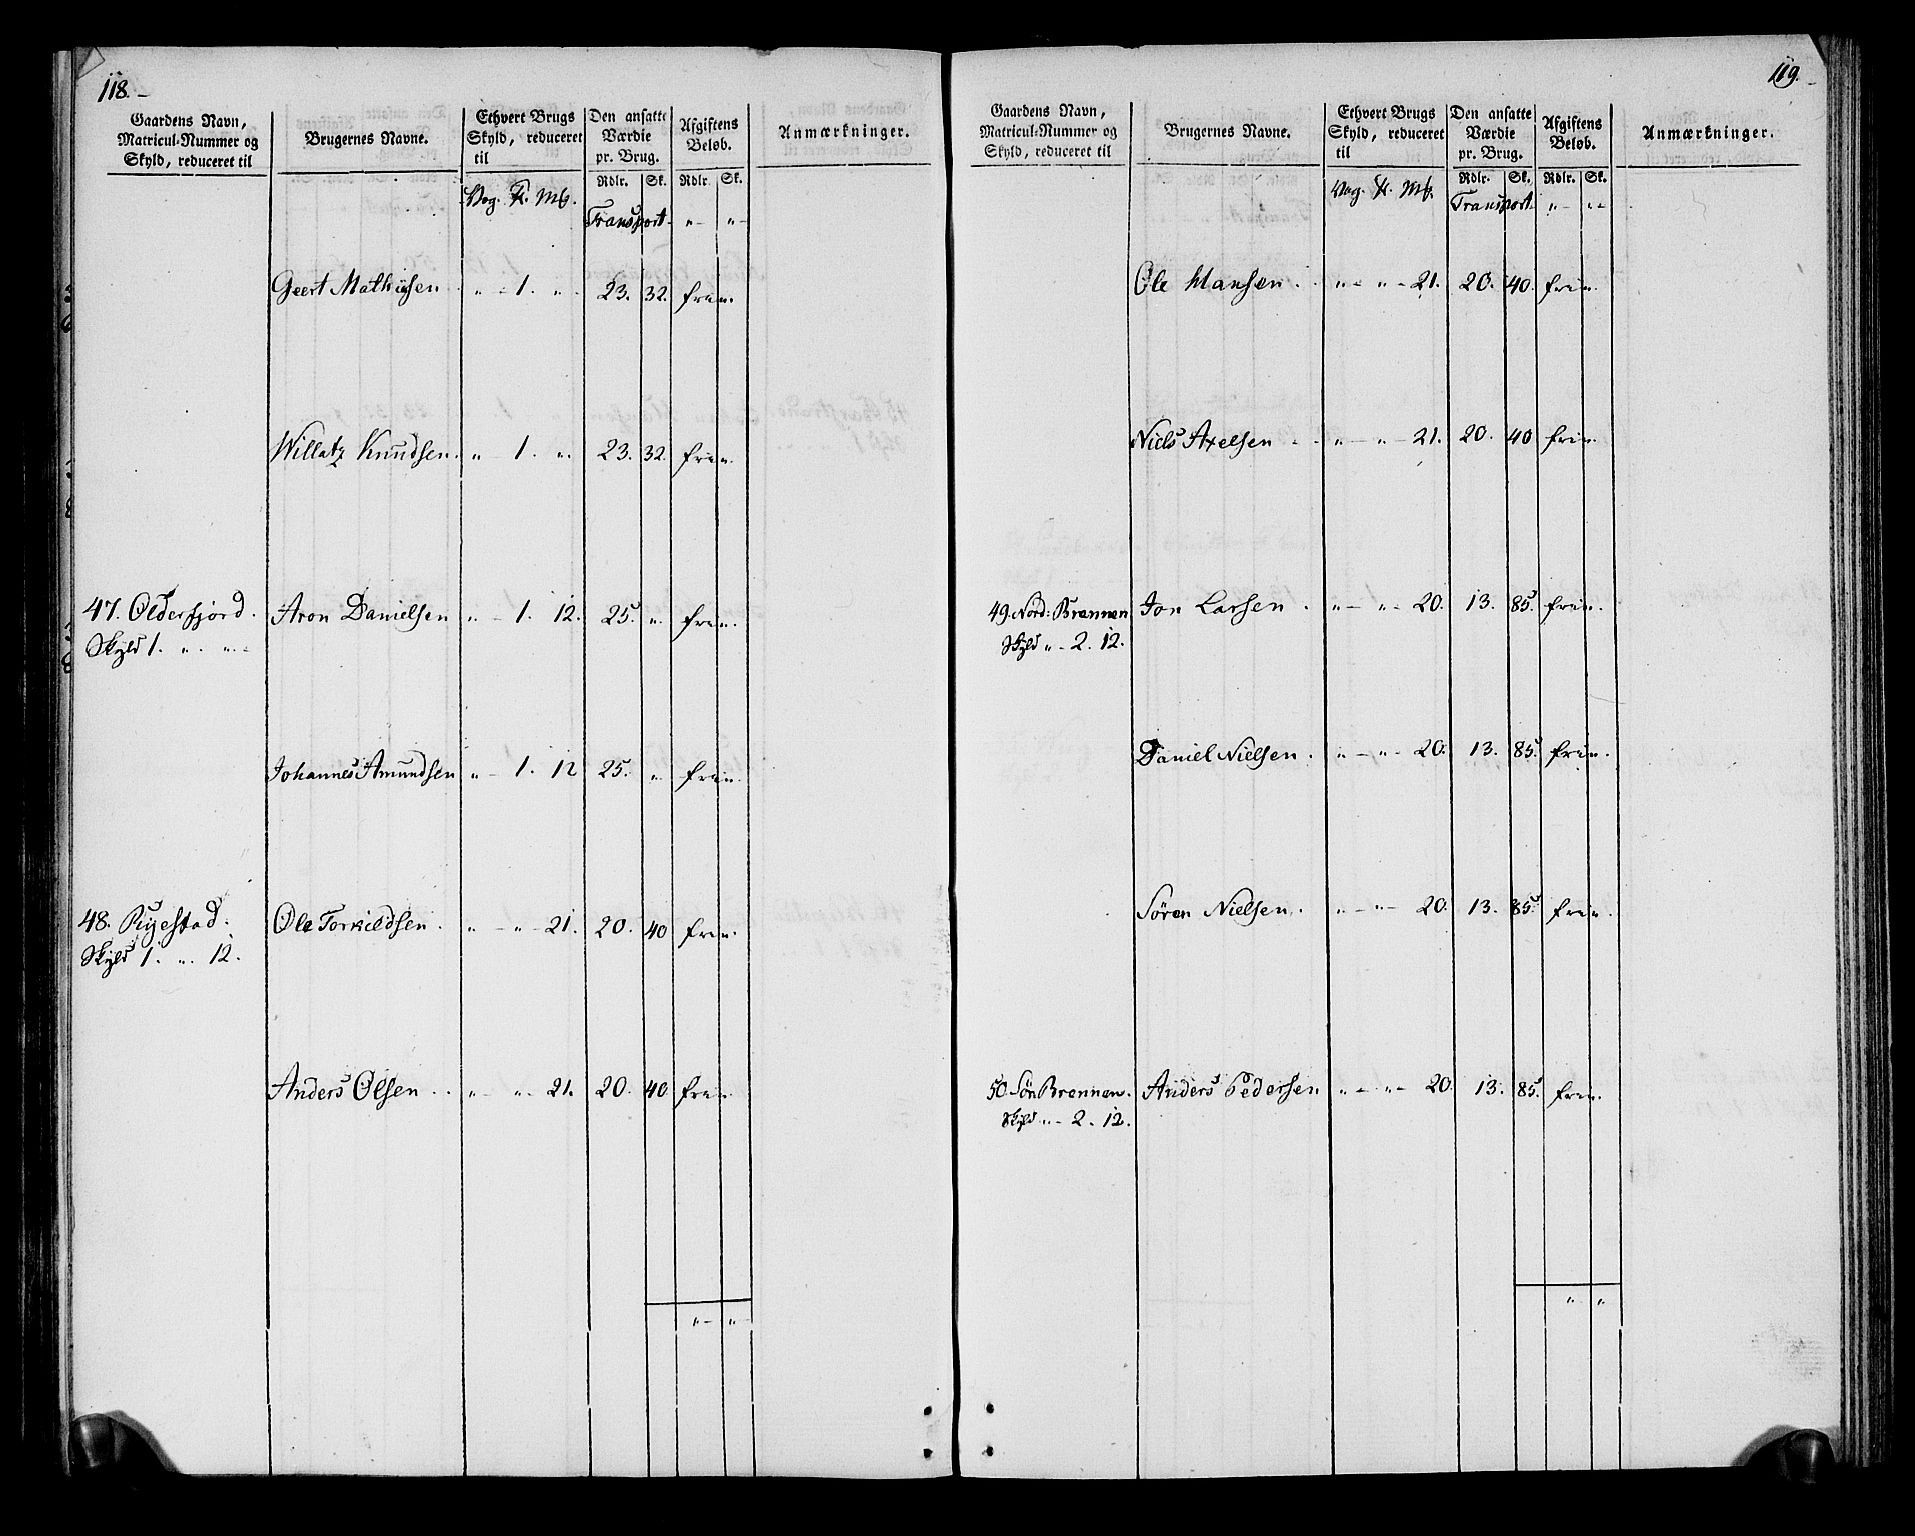 118.
Gaardens Navn, Matricul-Nummer og Skyld, reduceret til
Brugernes Navne.
Ethvert Brugs Skyld, reduceret til
Den ansatte Værdie pr. Brug.
Afgiftens Beløb.
Anmærkninger.
Rdlr. Sk. Rdlr. Sk.
Vog. ℔. Mk.
Transport „ „
Geert Mathiisen „ 1. „ 23. 32. frie.
Willatz Knudsen. „ 1. „ 23. 32. frie.
47. Olderfjord. Aron Danielsen „ 1. 12. 25. „ frie.
Skyld 1. „ „
Johannes Amundsen „ 1. 12 25. „ frie.
48. Ryestad. Ole Torkildsen. „ „ 21. 20. 40 frie.
Skyld 1. „ 12.
Anders Olsen. „ „ 21. 20. 40. frie.
„ „
119.
Gaardens Navn, Matricul-Nummer og Skyld, reduceret til
Brugernes Navne.
Ethvert Brugs Skyld, reduceret til
Den ansatte Værdie pr. Brug.
Afgiftens Beløb.
Anmærkninger.
Rdlr. Sk. Rdlr. Sk.
Vog. ℔. Mk.
Transport. „ „
Ole Hansen. „ „ 21. 20. 40. frie.
Niels Axelsen „ „ 21. 20. 40 frie.
49. Nord: Brennen Jon Larsen. „ „ 20. 13. 85. frie.
Skyld „ 2. 12.
Daniel Nielsen. „ „ 20. 13. 85. frie.
Søren Nielsen. „ „ 20. 13. 85. frie.
50. Søn Brennen. Anders Pedersen „ „ 20. 13. 85. frie.
Skyld „ 2. 12.
„ „